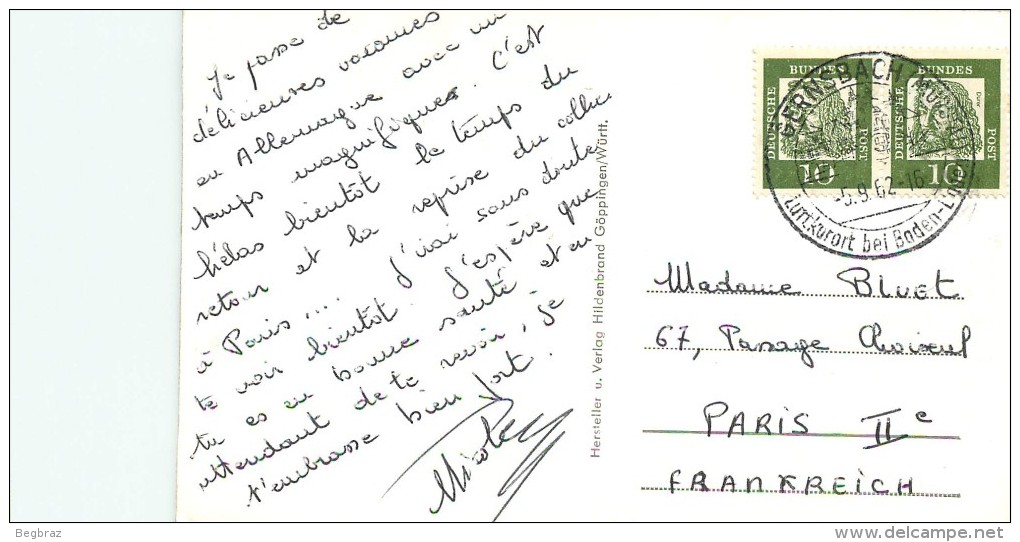 Je passe de
délicieuses vacances
en Allemagne avec un
temps magnifique. C'est
hélas bientôt le temps du
retour et la reprise du collier
à Paris... J'irai sans doute
te voir bientôt. J'espère que
tu es en bonne santé et en
attendant de te revoir, je
t'embrasse bien fort.
Nicole
Hersteller u. Verlag Hildenbrand Göppingen/Württ.
DEUTSCHE
BUNDES
POST
10
Dürer
DEUTSCHE
BUNDES
POST
10
GERNSBACH
-5.9.62-16
Luftkurort bei Baden-Baden
Madame Bluet
67, Passage Choiseul
PARIS IIe
FRANKREICH
Begbraz
delcampe.net